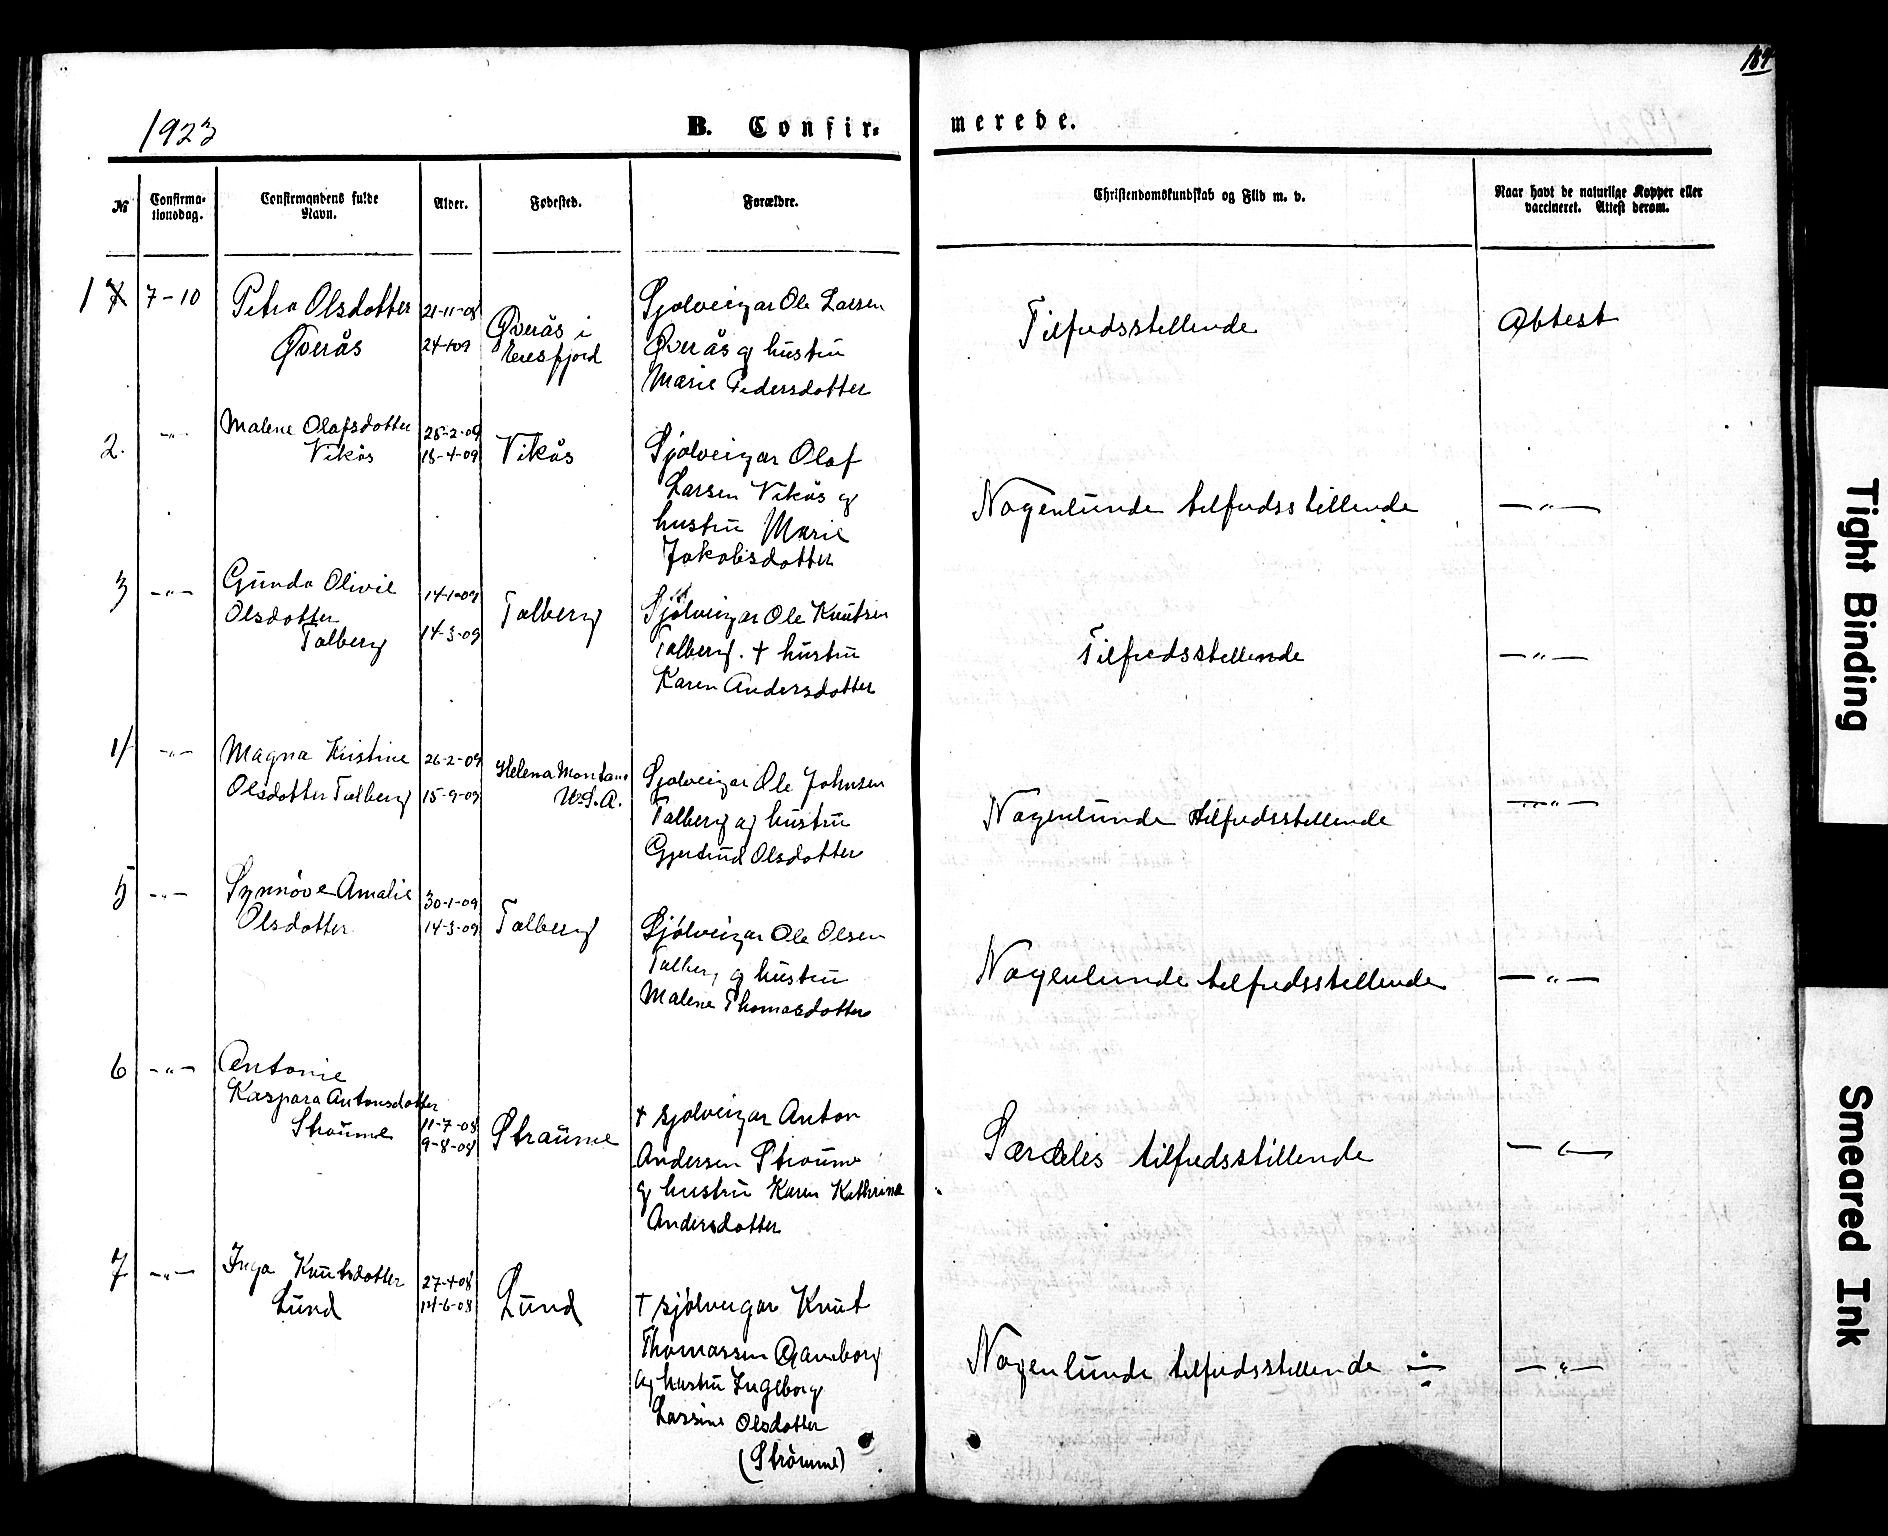 184
1923
B. Confir-
merede.
№
Confirma-
tionsdag.
Confirmandens fulde
Navn.
Alder.
Fødested.
Forældre.
Christendomskundskab og Flid m. v.
Naar havt de naturlige Kopper eller
vaccineret. Attest derom.
1
7-10
Petra Olsdotter
Øverås
21-11-08
24-1-09
Øverås i
Eresfjord
Sjølveigar Ole Larsen
Øverås og hustru
Marie Pedersdotter
Tilfredsstillende
Attest
2.
-„-
Malene Olafsdotter
Vikås
28-2-09
18-4-09
Vikås
Sjølveigar Olaf
Larsen Vikås og
hustru Marie
Jakobsdotter
Nogenlunde tilfredsstillende
-„-
3
-„-
Gunda Olivie
Olsdotter
Talberg
14-1-09
14-3-09
Talberg
Sjølveigar Ole Knutsen
Talberg. + hustru
Karen Andersdotter
Tilfredsstillende
-„-
4
-„-
Magna Kristine
Olsdotter Talberg
26-2-09
15-9-09
Helena Montana
U.S.A.
Sjølveigar Ole Johnsen
Talberg og hustru
Gjertrud Olsdotter
Nogenlunde tilfredsstillende
-„-
5
-„-
Synnøve Amalie
Olsdotter
30-1-09
14-3-09
Talberg
Sjølveigar Ole Olsen
Talberg og hustru
Malene Thomasdotter
Nogenlunde tilfredsstillende
-„-
6
-„-
Antonie
Kaspara Antonsdotter
Straume
11-7-08
9-8-08
Straume
+ sjølveigar Anton
Andersen Straume
og hustru Karen Kathrina
Andersdotter
Særdeles tilfredsstillende
-„-
7
-„-
Inga Knutsdotter
Lund
27-4-08
14-6-08
Lund
+ sjølveigar Knut
Thomassen
og hustru Ingeborg
Lassine Olsdotter
(Strømme)
Nogenlunde tilfredsstillende ÷
-„-
Tight Binding
Smeared Ink